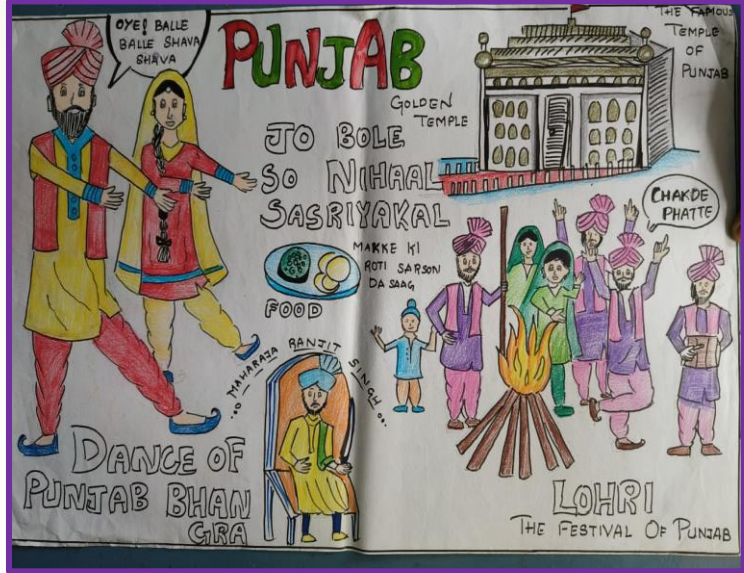 OYE! BALLE
BALLE SHAVA
SHAVA
PUNJAB
THE FAMOUS
TEMPLE
OF
PUNJAB
GOLDEN
TEMPLE
JO BOLE
SO NIHAAL
SASRIYAKAL
MAKKE KI
ROTI SARSON
DA SAAG
FOOD
CHAKDE
PHATTE
MAHARAJA RANJIT SINGH...
DANCE OF
PUNJAB BHAN
GRA
LOHRI
THE FESTIVAL OF PUNJAB